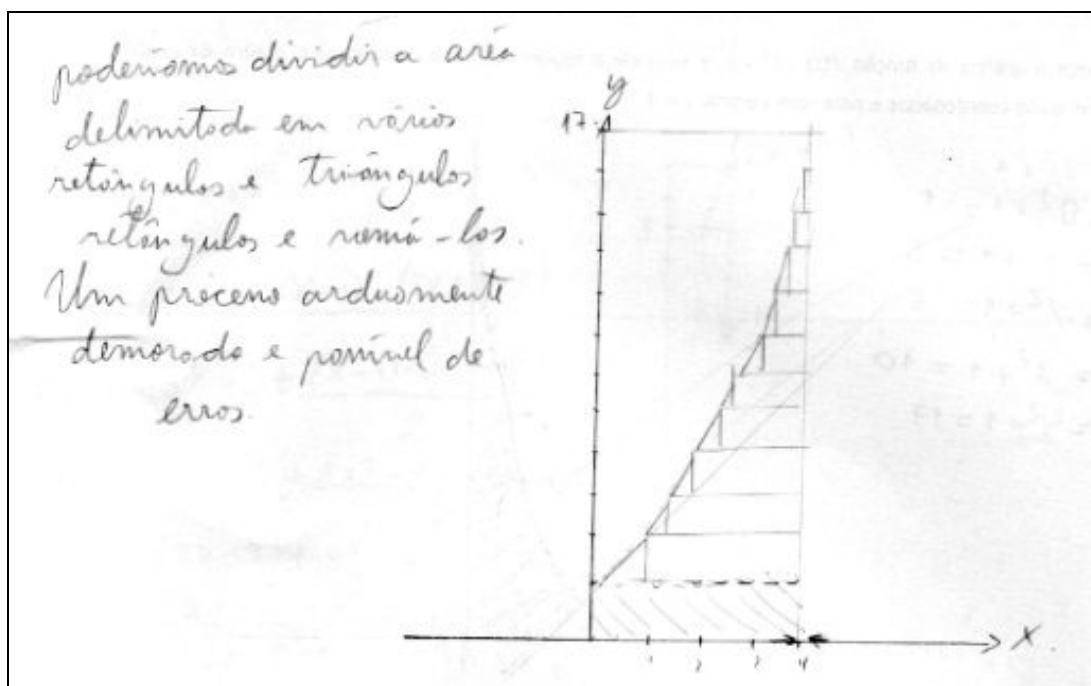 poderiamos dividir a aréa
delimitada em vários
retângulos e triângulos
retângulos e somá-los.
Um processo arduamente
demorado e possivel de
erros.
y
17
1 2 3 4
x